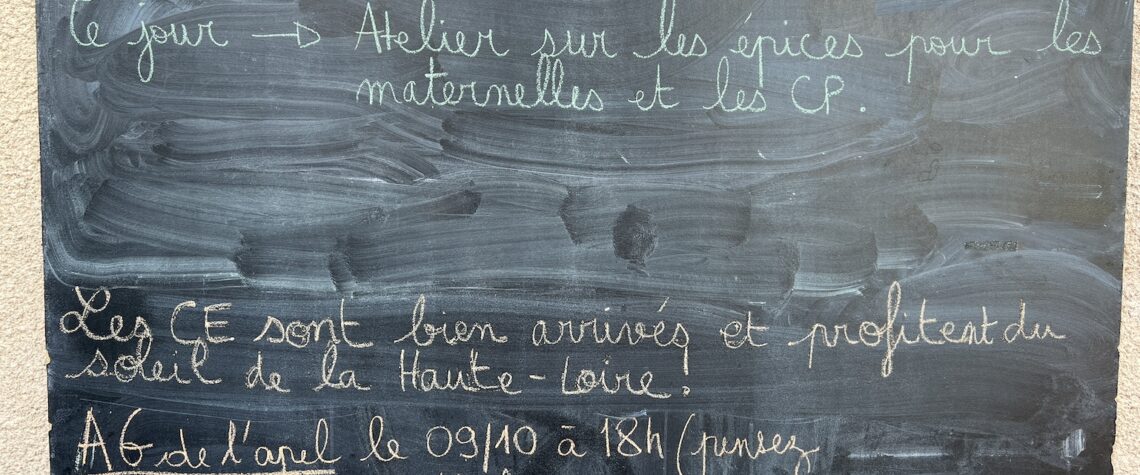 Ce jour → Atelier sur les épices pour les
maternelles et les CP.
Les CE sont bien arrivés et profitent du
soleil de la Haute-Loire!
AG de l'apel le 09/10 à 18h (pensez